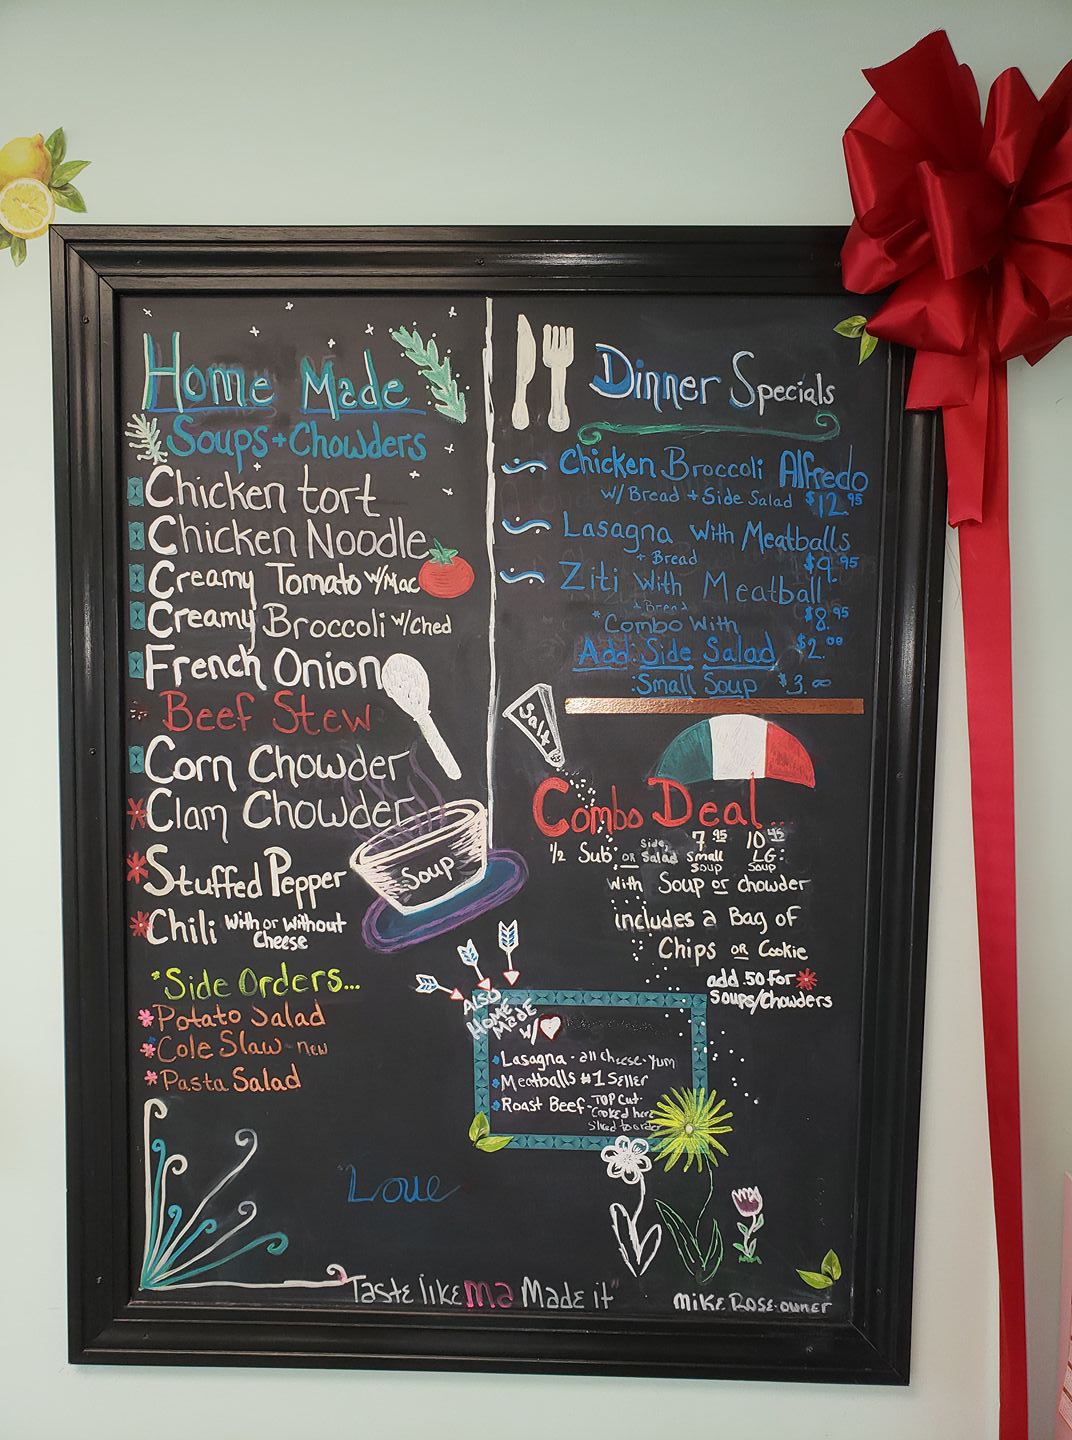 Home Made
Soups + Chowders
Chicken tort
Chicken Noodle
Creamy Tomato w/Mac
Creamy Broccoli w/Ched
French Onion
Beef Stew
Corn Chowder
Clam Chowder
*Stuffed Pepper
*Chili With or Without
Cheese
Soup
*Side Orders...
*Potato Salad
*Cole Slaw - new
*Pasta Salad
Dinner Specials
~ Chicken Broccoli Alfredo
w/ Bread + Side Salad $12.95
~ Lasagna with Meatballs
+ Bread $9.95
~ Ziti With Meatball
+ Bread $8.95
*Combo With
Add Side Salad $2.00
:Small Soup $3.00
Salt
Combo Deal...
1/2 Sub, or Side Salad 7.95 Small Soup 10.45 LG: Soup
with Soup or chowder
includes a Bag of
Chips or Cookie
add .50 for *
Soups/Chowders
ALSO
HOME
MADE
w/
Lasagna - all cheese - yum
Meatballs #1 Seller
Roast Beef - TOP Cut -
Cooked here
Sliced to order
"Love
Taste like ma Made it"
Mike Rose - owner